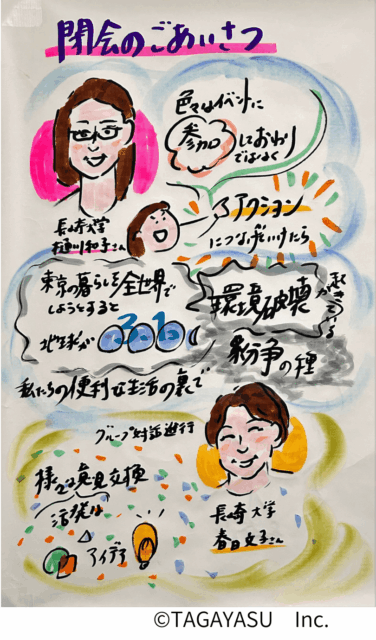 閉会のごあいさつ
色々なイベントに
参加しておわり
ではなく
アクション
につなげていけたら
長崎大学
和子さん
東京の暮らしを全世界で
しようとすると
地球が
環境破壊
が起きている
紛争の種
私たちの便利な生活の裏で
グループ対話進行
様々な意見交換
活発な
アイデア
長崎大学
春日文子さん
©TAGAYASU Inc.